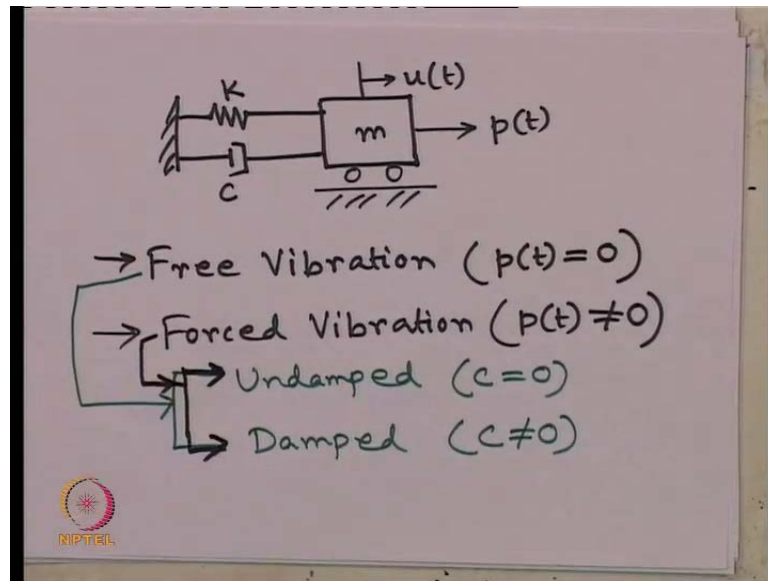 K
u(t)
m
p(t)
C
→ Free Vibration (p(t) = 0)
→ Forced Vibration (p(t) ≠ 0)
→ Undamped (c = 0)
→ Damped (c ≠ 0)
NPTEL